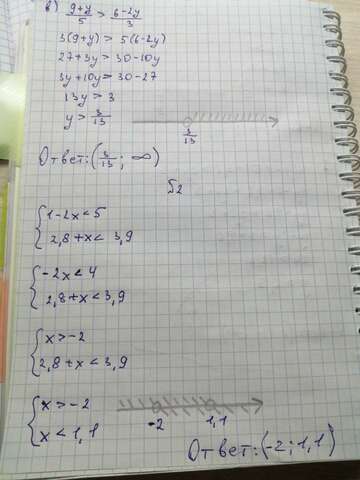 в) (9+y)/5 > (6-2y)/3
3(9+y) > 5(6-2y)
27+3y > 30-10y
3y+10y > 30-27
13y > 3
y > 3/13
3/13
Ответ: (3/13; ∞)
Б2
{1-2x<5
2,8+x< 3,9
{-2x<4
2,8+x<3,9
{x>-2
2,8+x<3,9
{x>-2
x<1,1
-2 1,1
Ответ: (-2; 1,1)